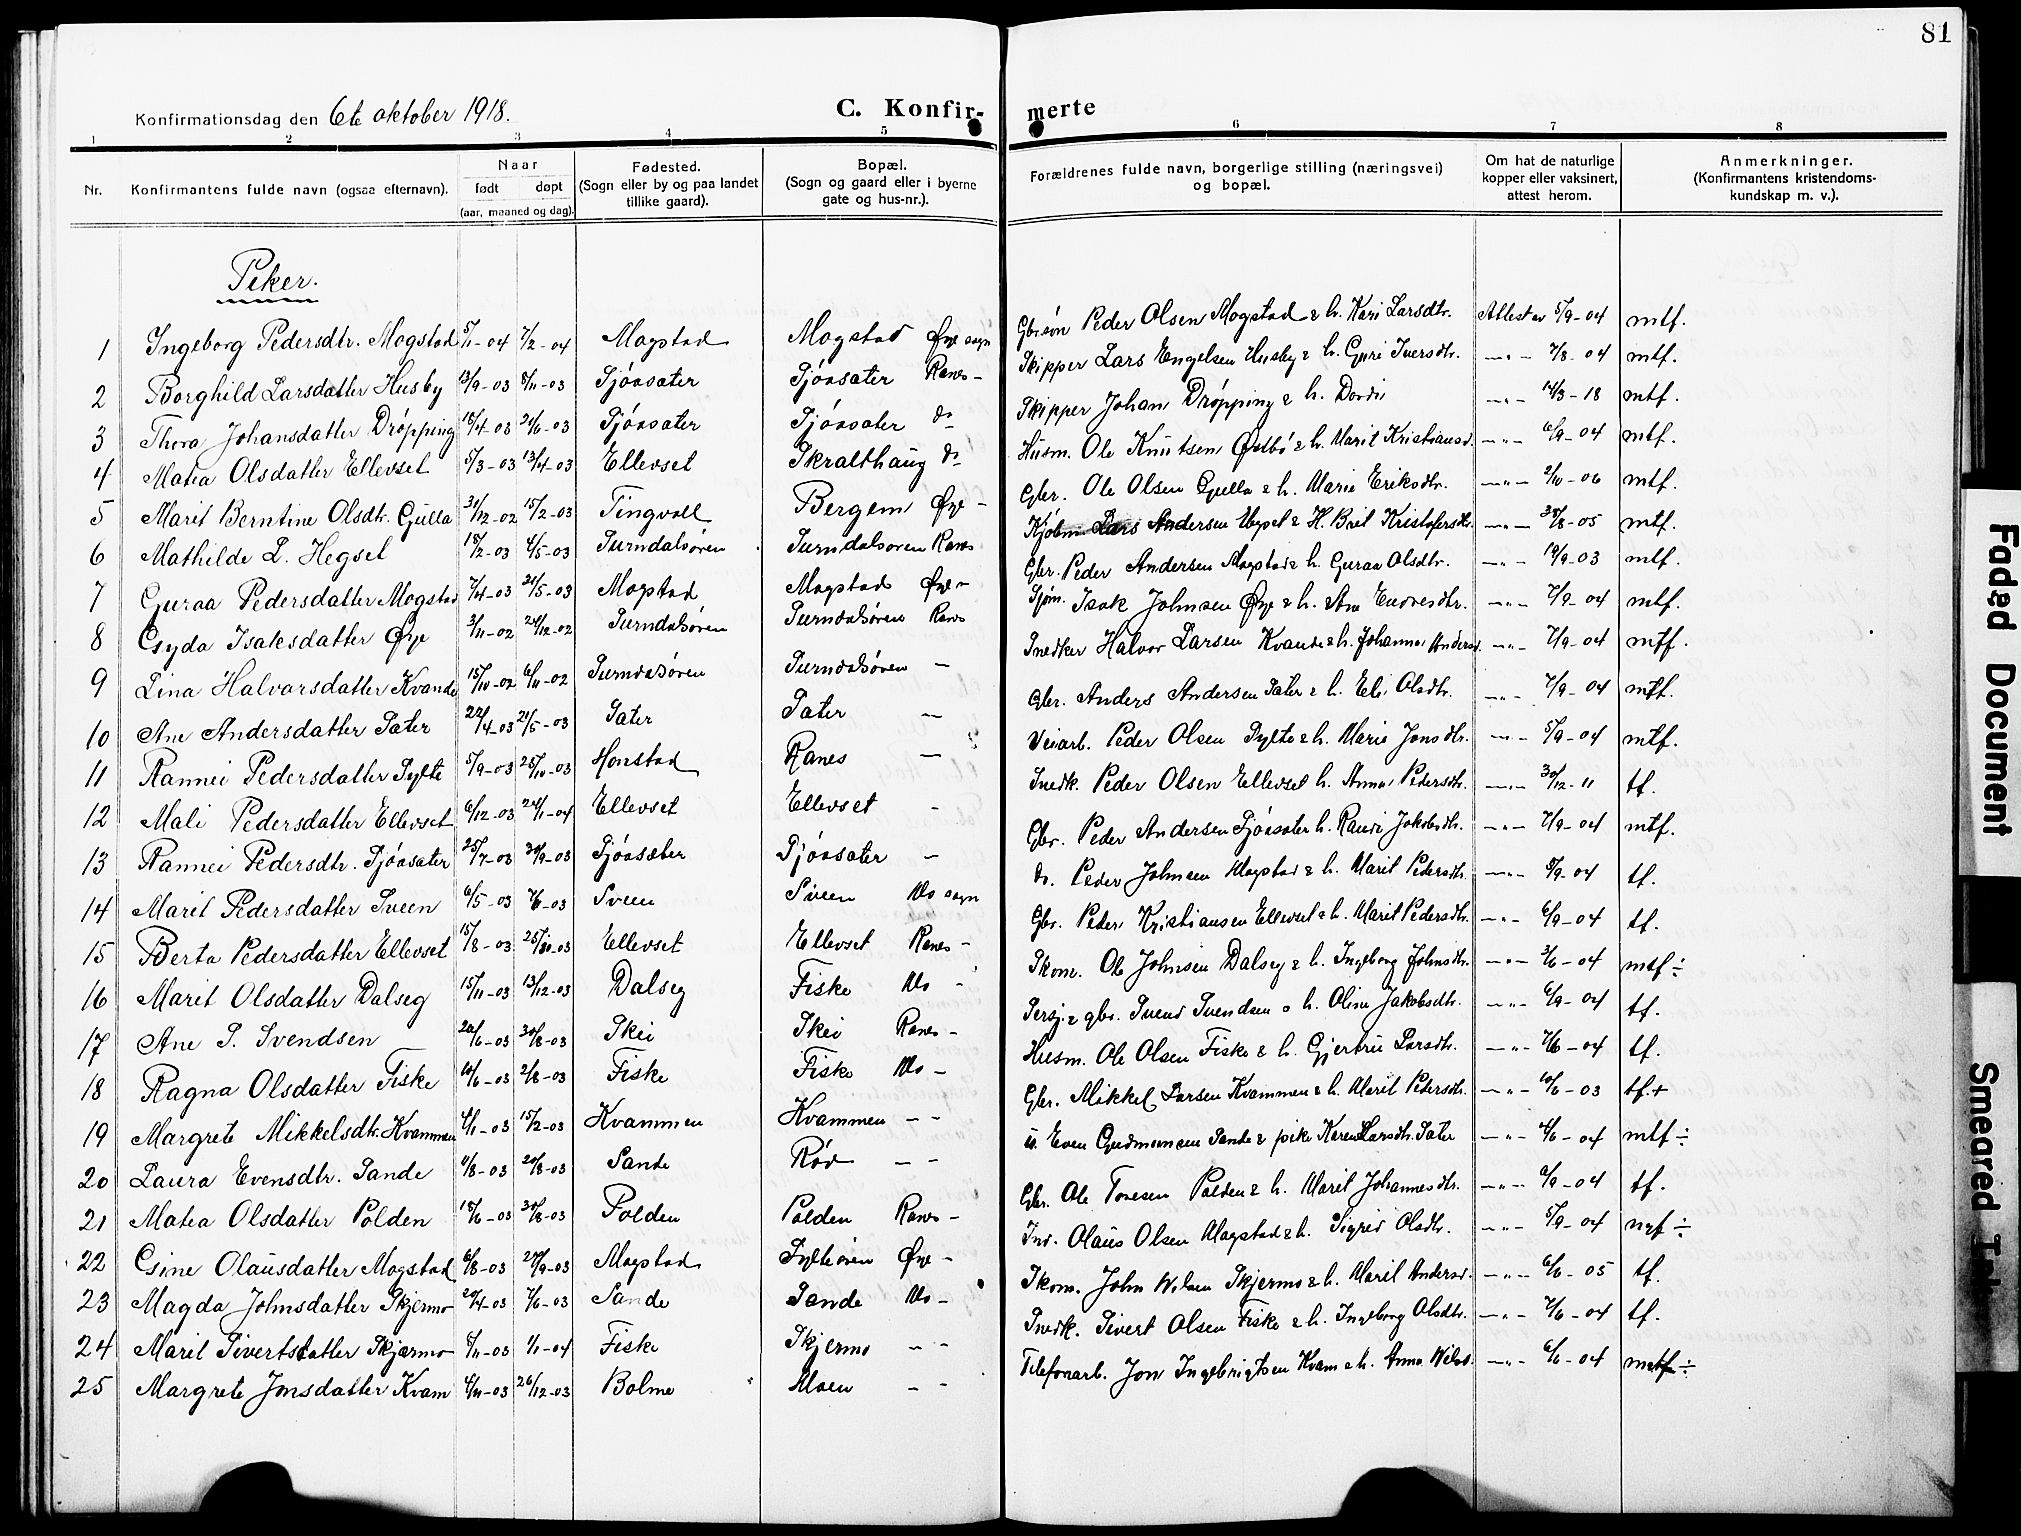 81
Konfirmationsdag den 6te oktober 1918.
C. Konfir- merte
1 2 3 4 5 6 7 8
Nr. Konfirmantens fulde navn (ogsaa efternavn). Naar født døpt (aar, maaned og dag). Fødested. (Sogn eller by og paa landet tillike gaard). Bopæl. (Sogn og gaard eller i byerne gate og hus-nr.). Forældrenes fulde navn, borgerlige stilling (næringsvei) og bopæl. Om hat de naturlige kopper eller vaksinert, attest herom. Anmerkninger. (Konfirmantens kristendoms- kundskap m. v.).
Piker.
1 Ingeborg Pedersdtr. Mogstad 5/1-04 7/2-04 Mogstad Mogstad Øye sogn Gbr.søn Peder Olsen Mogstad & h. Kari Larsdtr. Attest av 5/9-04 mtf.
2 Borghild Larsdatter Husby 13/9-03 8/11-03 Sjøasæter Sjøasæter Ranes - Skipper Lars Engelsen Husby & h. Guri Iversdtr. -"- 7/8-04 mtf.
3 Thora Johansdatter Drøpping 18/4-03 21/6-03 Sjøasæter Sjøasæter do Skipper Johan Drøpping & h. Dordi -"- 14/3-18 mtf.
4 Matea Olsdatter Ellevset 5/3-03 13/4-03 Ellevset Skralthaug do Husm. Ole Knutsen Østbø & h. Marit Kristiansd. -"- 6/9-04 mtf.
5 Marit Berntine Olsdtr. Gulla 31/12-02 15/2-03 Tingvoll Bergem Øye - Gbr. Ole Olsen Gulla & h. Marie Eriksdtr. -"- 2/10-06 mtf.
6 Mathilde L. Hegset 18/2-03 4/5-03 Surndalsøren Surndalsøren Ranes Kjøbm Lars Andersen Hegset & H. Brit Kristofersdtr. -"- 28/8-05 mtf.
7 Guraa Pedersdatter Mogstad 7/4-03 21/5-03 Mogstad Mogstad Øye - Gbr. Peder Andersen Mogstad & h. Guraa Olsdtr. -"- 19/9-03 mtf.
8 Gyda Isaksdatter Øye 3/11-02 24/12-02 Surndalsøren Surndalsøren Ranes Sjøm. Isak Johnsen Øye & h. Ane Endresdtr. -"- 7/9-04 mtf.
9 Lina Halvorsdatter Kvande 15/10-02 6/11-02 Surndalsøren Surndalsøren - Snedker Halvor Larsen Kvande & h. Johanna Andersd. -"- 7/9-04 mtf.
10 Ane Andersdatter Sæter 22/4-03 21/5-03 Sæter Sæter - Gbr. Anders Andersen Sæter & h. Eli Olsdtr. -"- 7/9-04 mtf.
11 Rannei Pedersdatter Sylte 5/9-03 25/10-03 Honstad Ranes - Veiarb. Peder Olsen Sylte & h. Marie Jonsdtr. -"- 5/9-04 mtf.
12 Mali Pedersdatter Ellevset 6/12-03 24/1-04 Ellevset Ellevset - Snedk. Peder Olsen Ellevset h. Anna Pedersdtr. -"- 30/12-11 tf.
13 Rannei Pedersdtr. Sjøasæter 25/7-03 30/9-03 Sjøasæter Sjøasæter - Gbr. Peder Andersen Sjøasæter h. Randi Jakobsdtr. -"- 7/9-04 mtf.
14 Marit Pedersdatter Sveen 6/5-03 7/6-03 Sveen Sveen Mo sogn do. Peder Johnsen Mogstad & h. Marit Pedersdtr. -"- 8/9-04 tf.
15 Berta Pedersdatter Ellevset 15/8-03 25/10-03 Ellevset Ellevset Ranes - Gbr. Peder Kristiansen Ellevset & h. Marit Pedersdtr. -"- 6/9-04 tf.
16 Marit Olsdatter Dalseg 15/11-03 13/12-03 Dalseg Fiske Mo - Skom. Ole Johnsen Dalseg & h. Ingeborg Johnsdtr. -"- 3/6-04 mtf ÷
17 Ane S. Svendsen 20/6-03 30/8-03 Skei Skei Ranes - Sersj. & gbr. Svend Svendsen o h. Oline Jakobsdtr. -"- 6/9-04 tf.
18 Ragna Olsdatter Fiske 10/6-03 2/8-03 Fiske Fiske Mo - Husm. Ole Olsen Fiske & h. Gjertru Larsdtr. -"- 7/6-04 tf.
19 Margrete Mikkelsdtr. Kvammen 4/1-03 15/2-03 Kvammen Kvammen - - Gbr. Mikkel Larsen Kvammen & h. Marit Pedersdtr. -"- 10/6-03 tf.+
20 Laura Evensdtr. Sande 11/8-03 20/8-03 Sande Rød - - u. Even Gudmunsen Sande & pike Karen Larsdtr. Sæter -"- 4/6-04 mtf ÷
21 Matea Olsdatter Polden 18/6-03 30/8-03 Polden Polden Ranes - Gbr. Ole Toresen Polden & h. Marit Johannesdtr. -"- 6/9-04 tf.
22 Gine Olausdatter Mogstad 6/8-03 27/9-03 Mogstad Sylteøren Øye - Ind. Olaus Olsen Mogstad & h. Sigrid Olsdtr. -"- 5/9-04 ngf ÷
23 Magda Johnsdatter Skjermo 20/4-03 7/6-03 Sande Sande Mo - Skom. John Nilsen Skjermo & h. Marit Andersd. -"- 6/6-05 tf.
24 Marit Sivertsdatter Skjærmo 8/11-03 1/1-04 Fiske Skjermo - - Snedk. Sivert Olsen Fiske & h. Ingeborg Olsdtr. -"- 7/6-04 tf.
25 Margrete Jonsdatter Kvam 4/11-03 26/12-03 Bolme Moen - - Telefonarb. Jon Ingebrigtsen Kvam & h. Anna Nilsd. -"- 6/6-04 mtf ÷
Faded Document
Smeared Ink